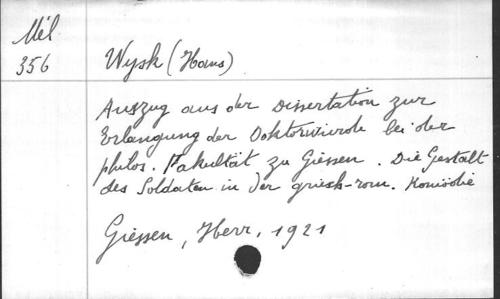 Mél
356
Wysk (Hans)
Auszug aus der Dissertation zur
Erlangung der Doktorwürde bei der
philos. Fakultät zu Giessen. Die Gestalt
des Soldaten in der griech-röm. Komödie
Giessen, Herr, 1921